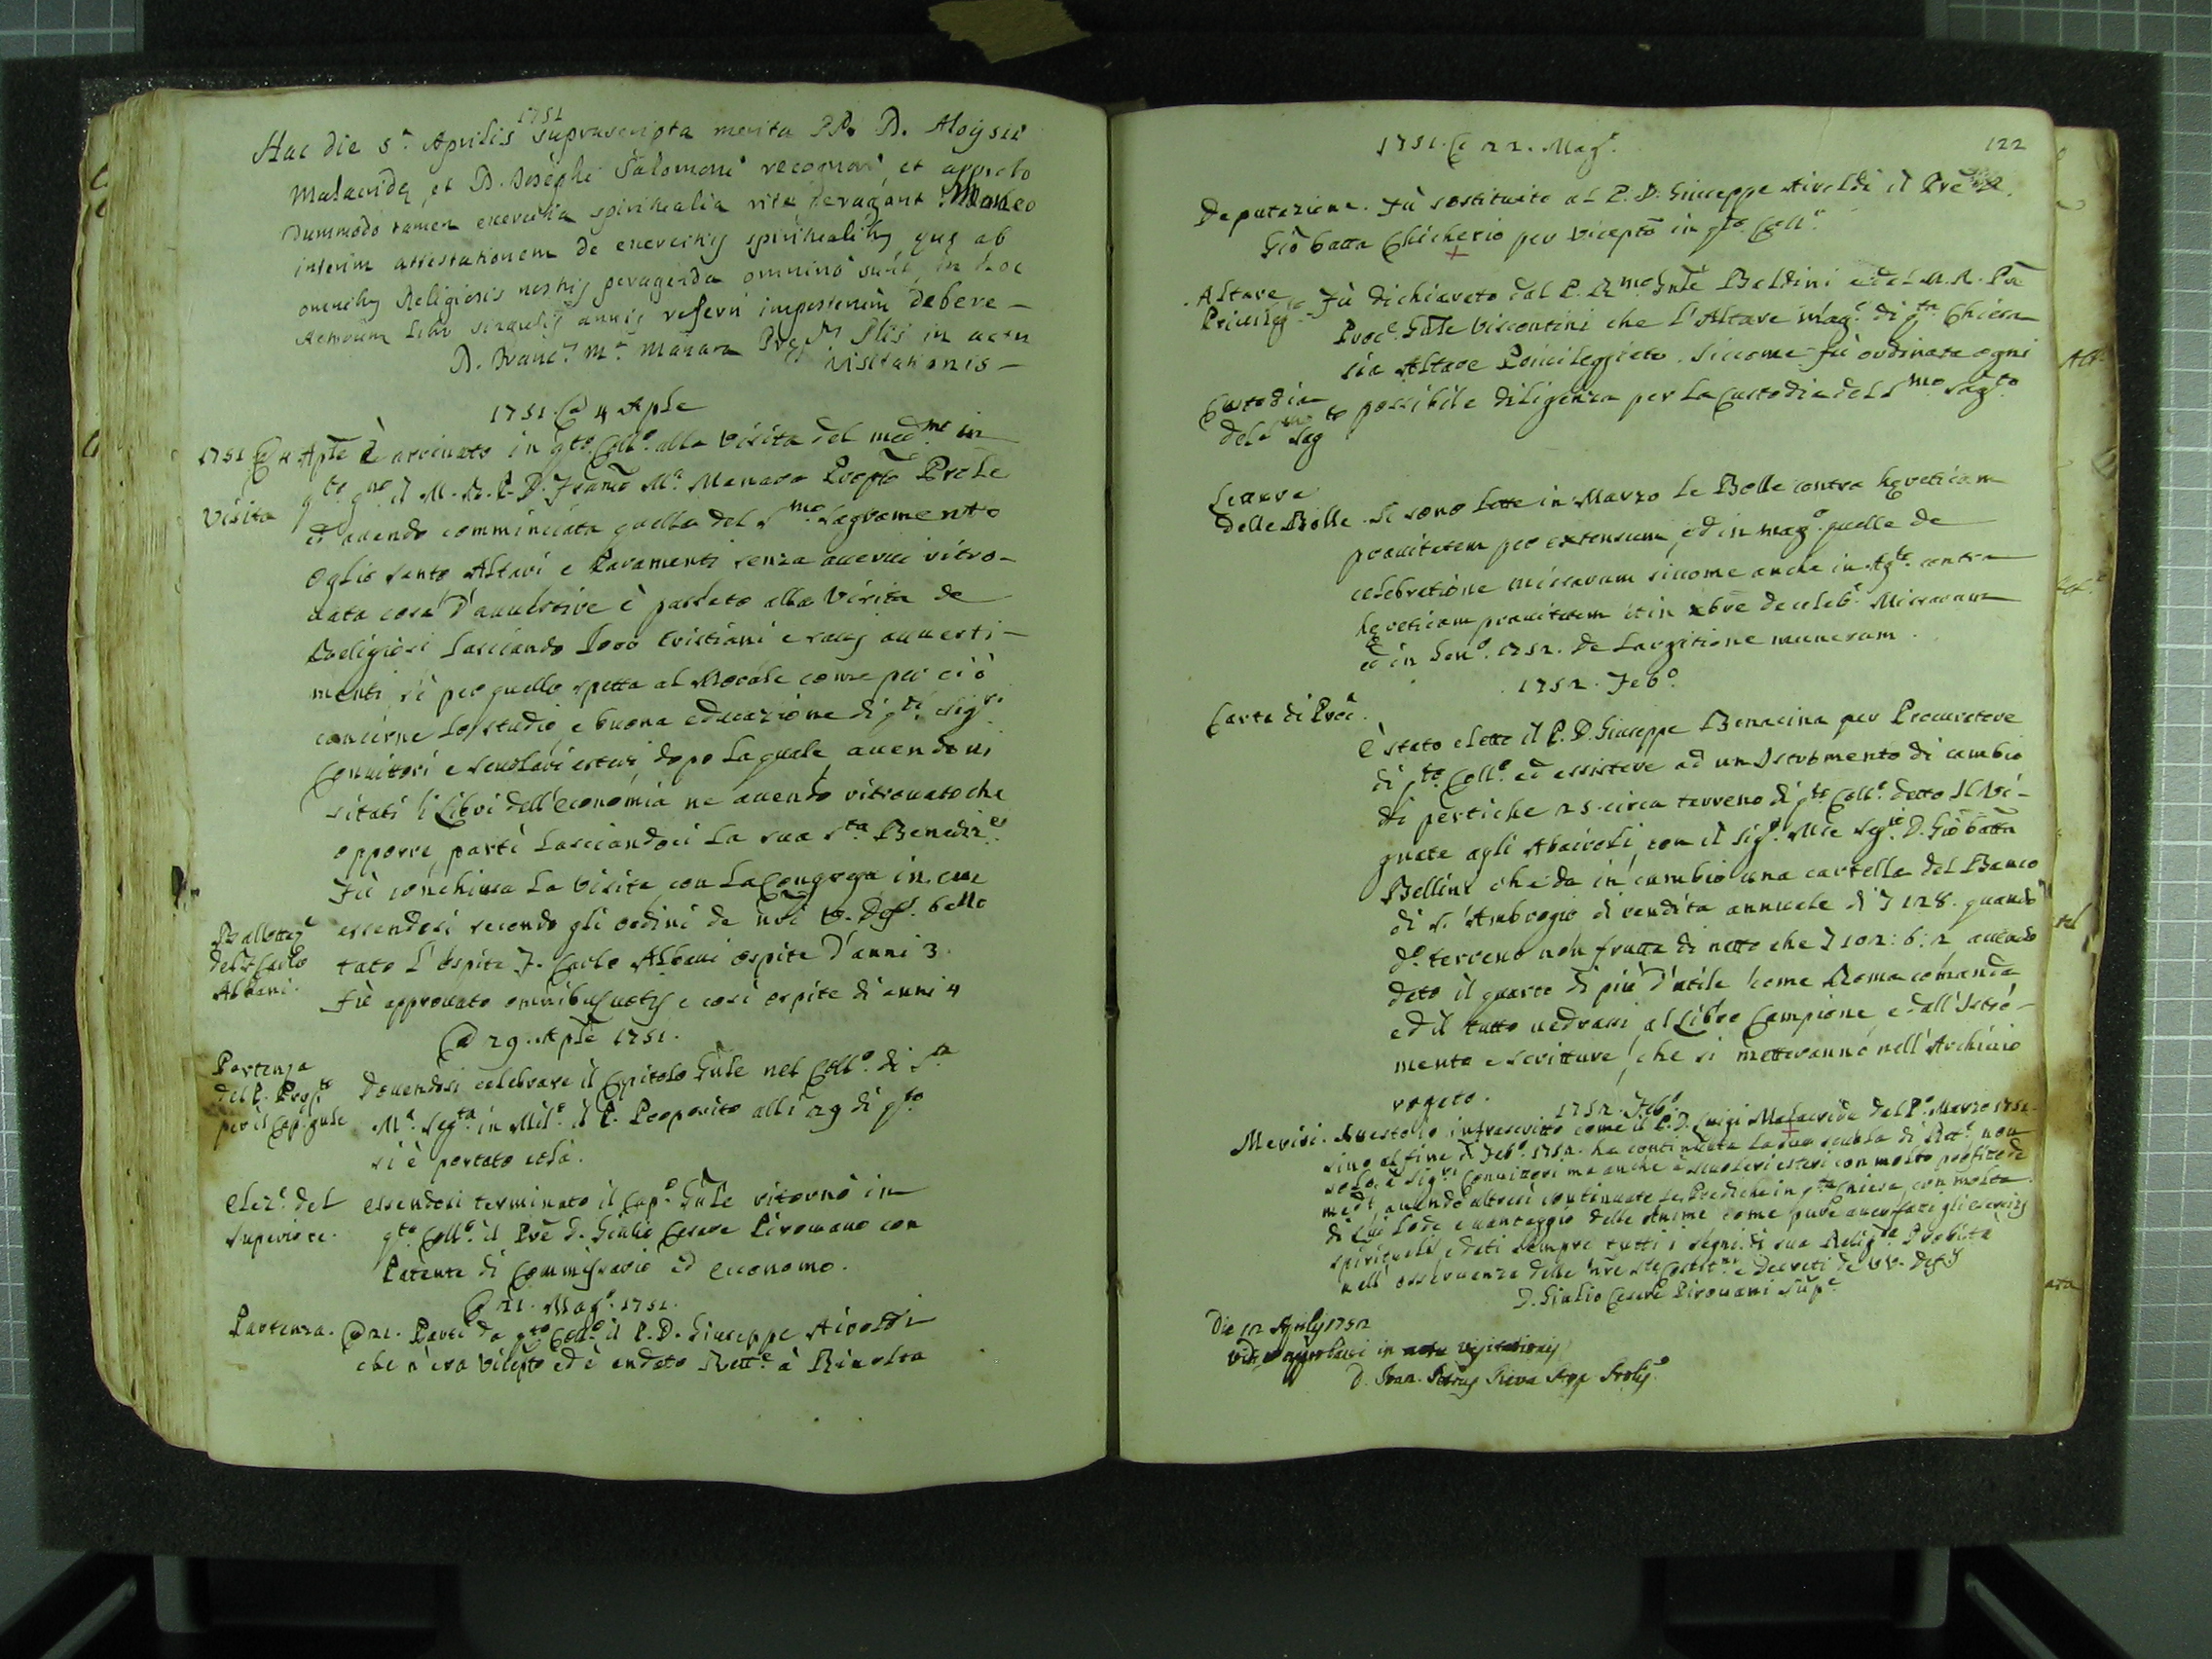 1751
Hac die 5.a Aprilis suprascripta merita PP. D. Aloysii
Malacridę, et D. Josephi Salomoni recognovi, et approbo
dummodo tamen exercitia spiritualia rite peragant. Moneo
interim attestationem de exercitijs spiritualibus, quę ab
omnibus Religiosis nostris peragenda omnino sunt, in hoc
Actorum libro singulis annis referri imposterum debere —
D. Franc.s M.a Manara Pręp.s Plis in actu
visitationis —
1751. @ 4 Aple
1751 @ 4 Aple È arrivato in q.to Coll.o alla visita del med.mo in
Visita q.to g.no il M. R. P. D. Franco M.a Manara Prepto Prole
ed avendo comminciata quella del S.mo Sagramento
Oglio santo Altari e Paramenti senza avervi ritro-
vata cosa d'avvertire è passato alla visita de
Religiosi lasciando loro Cristiani e savj avverti-
menti, sì per quello spetta al Morale come per ciò
concerne lo studio e buona educazione di q.ti Sig.ri
Convittori e scuolari esteri, dopo la quale avendo vi
sitati li Libri dell'economia ne avendo ritrovato che
opporre, partì lasciandoci la sua s.ta Benediz.e
Fù conchiusa la visita con la Congrega in cui
Ballottaz.e essendosi secondo gli ordini de nri V. Def. ballo
del F. Carlo tato l'ospite F. Carlo Albani ospite d'anni 3.
Albani. fù approvato omnibus votis e così ospite di anni 4
@ 29. Aple 1751.
Partenza Dovendosi celebrare il Capitolo Gnle nel Coll.o di S.a
del P. Prep.to M.a Seg.ta in Mil.o il P. Preposito alli 29 di q.to
per il Cap. gnle si è portato colà.
Elez.e del Essendosi terminato il Cap.o Gnle ritornò in
Superiore. q.to Coll.o il Pre D. Giulio Cesare Pirovano con
Patente di Commissario ed economo.
@ 21. Mag.o 1751.
Partenza. @ 21. Partì da q.to Coll.o il P. D. Giuseppe Airoldi
che n'era Vicepto ed è andato Rett.e à Rivolta
122
1751. @ 22. Mag.o
Deputazione. Fù sostituito al P. D. Giuseppe Airoldi il Pre D.
Gio batta Chicherio per Vicepto in q.to Coll.o
Altare Fù dichiarato dal P. R.mo Gnle Baldini e del M. R. Pre
Privileg.to Proc.e Gnle Viscontini che l'Altare mag.e di q.ta Chiesa
sia Altare Privileggiato. Siccome fù ordinata ogni
Custodia possibile diligenza per la Custodia del S.mo Sag.to
del S.mo Sag.to
Lettura
delle Bolle. Si sono lette in Marzo le Bolle contra hęreticam
pravitatem per extensum, ed in mag.o quelle de
celebratione missarum siccome anche in Ag.to contra
hęreticam pravitatem et in Xbre de celeb.e Missarum
ed in Gen.o 1752. de largitione munerum.
1752. Feb.o
Carta di Proc.
È stato eletto il P. D. Giuseppe Benacina per Procuratore
di q.to Coll.o ed assistere ad un Istrumento di cambio
di pertiche 25. circa terreno di q.to Coll.o detto Il Vi-
gnate agli Abairoli, con il Sig.r Mse Seg.rio D. Gio batta
Bellini che da in cambio una cartella del Banco
di S. Ambrogio di rendita annuale di 128. quando
d.o terreno non frutta di netto che 102: 6: 2 avendo
dato il quarto di più d'utile come Roma comanda
ed il tutto vedrassi al Libro Campione e dall'Istro-
mento e scritture, che si metteranno nell'Archivio
rogato.
1752. Feb.o
Meriti. Attesto io infrascritto come il P. D. Luigi Malacrida dal P.o Marzo 1751.
sino al fine di Feb.o 1752. ha continuata la sua scuola di Rett.a non
solo à Sig.ri Convittori ma anche à scuolari esteri con molto profitto de
med.i, avendo altresì continuate le Prediche in q.ta Chiesa con molta
di lui lode e vantaggio delle Anime come pure aver fatti gli esercizj
spirituali, e dati sempre tutti i segni di sua Relig.sa Probità
nell'osservanza delle nre S.te Costit.ni e decreti de VV. Def.j
D. Giulio Cesare Pirovani Sup.e
Die 12 Aprilis 1752
Vidi, et approbavi in actu visitationis
D. Ioan. Petrus Riva Prep. Prolis